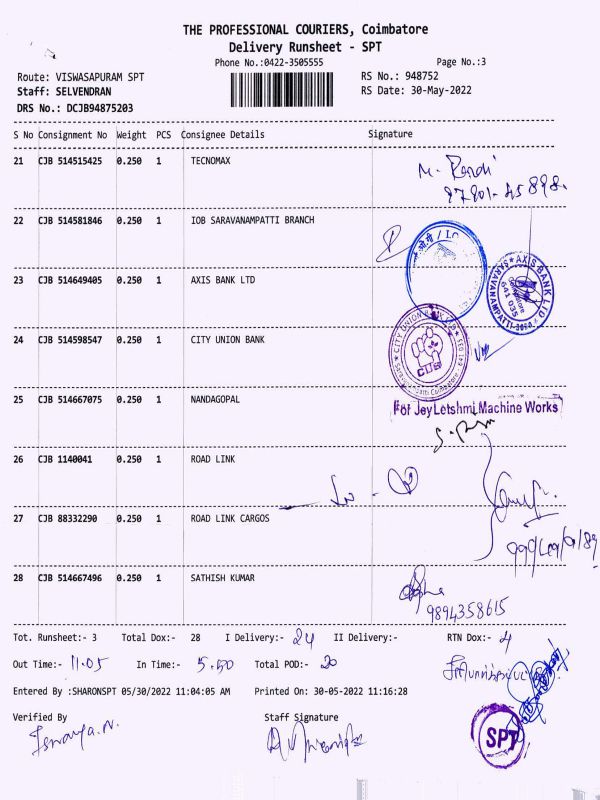 THE PROFESSIONAL COURIERS, Coimbatore
Delivery Runsheet - SPT
Phone No.:0422-3505555
Page No.:3
Route: VISWASAPURAM SPT
RS No.: 948752
Staff: SELVENDRAN
RS Date: 30-May-2022
DRS No.: DCJB94875203
S No Consignment No Weight PCS Consignee Details Signature
21 CJB 514515425 0.250 1 TECNOMAX
22 CJB 514581846 0.250 1 IOB SARAVANAMPATTI BRANCH
23 CJB 514649405 0.250 1 AXIS BANK LTD
AXIS BANK LTD
SARAVANAMPATTI
Coimbatore
641 035
24 CJB 514598547 0.250 1 CITY UNION BANK
CITY UNION BANK LTD
CUB
25 CJB 514667075 0.250 1 NANDAGOPAL
For Jey Letshmi Machine Works
26 CJB 1140041 0.250 1 ROAD LINK
27 CJB 88332290 0.250 1 ROAD LINK CARGOS
28 CJB 514667496 0.250 1 SATHISH KUMAR
9894358615
Tot. Runsheet:- 3 Total Dox:- 28 I Delivery:- 24 II Delivery:- RTN Dox:- 4
Out Time:- 11.05 In Time:- 5.50 Total POD:- 20
Entered By :SHARONSPT 05/30/2022 11:04:05 AM Printed On: 30-05-2022 11:16:28
Verified By Staff Signature
SPT